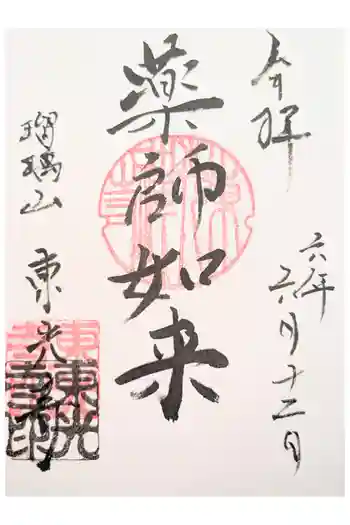 奉拝
六年六月十二日
薬師如来
瑠璃山 東光寺